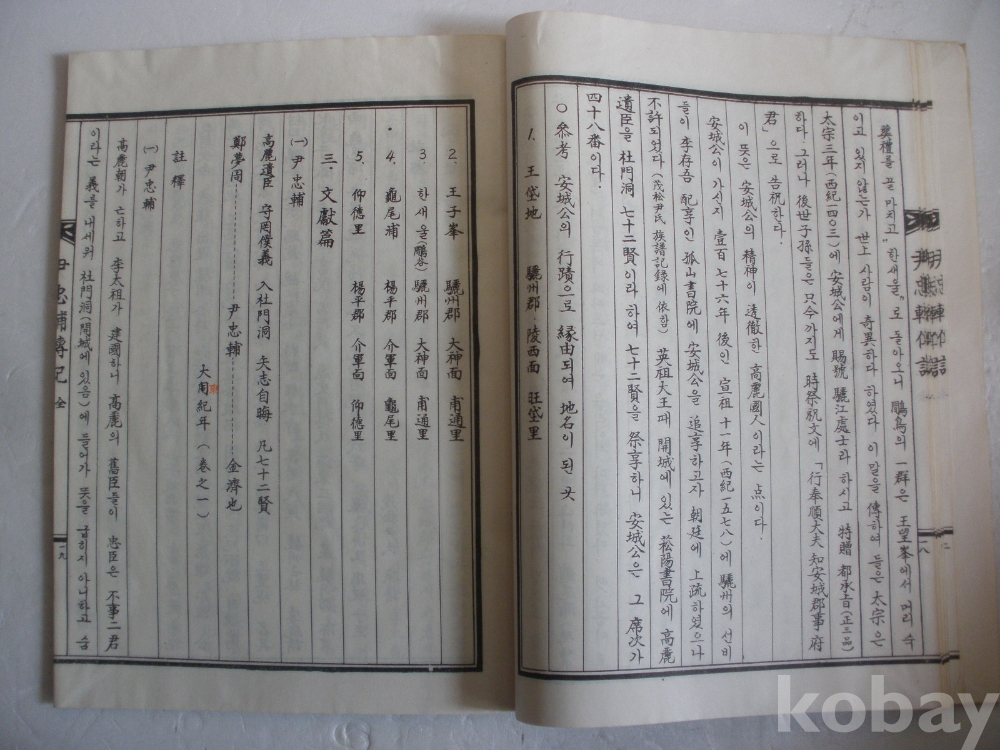 葬禮를 끝마치고 "한새울"로 돌아오니 鵬鳥의 一群은 王望峯에서 머리 숙
이고 있지 않는가 世上 사람이 奇異하다 하였다 이 말을 傳하여 들은 太宗은
太宗三年(西紀一四〇三)에 安城公에게 賜號 驪江處士라 하시고 特贈 都承旨(正三品)
하다. 그러나 後世子孫들은 只今까지도 時祭祝文에 「行奉順大夫 知安城郡事 府
君」으로 告祝하다.
이 뜻은 安城公의 精神이 透徹한 高麗國人이라는 点이다.
安城公이 가신지 壹百七十六年 後인 宣祖十一年(西紀一五七八)에 驪州의 선비
들이 李存吾 配享인 孤山書院에 安城公을 追享하고자 朝廷에 上疏하였으나
不許되었다(茂松尹氏 族譜記錄에 依함) 英祖大王때 開城에 있는 崧陽書院에 高麗
遺臣을 杜門洞 七十二賢이라 하여 七十二賢을 祭享하니 安城公은 그 席次가
四十八番이다.
○ 参考 安城公의 行蹟으로 緣由되여 地名이 된 곳
1. 王垈地 驪州郡 陵西面 旺垈里
一八
2. 王子峯 驪州郡 大神面 甫通里
3. 한새울(鵬谷) 驪州郡 大神面 甫通里
4. 龜尾浦 楊平郡 介軍面 龜尾里
5. 仰德里 楊平郡 介軍面 仰德里
三. 文獻篇
(一) 尹忠輔
高麗遺臣 守罔僕義 入杜門洞 矢志自晦 凡七十二賢
鄭夢周 尹忠輔 金濟也
大東紀年(卷之一)
註釋
(一) 尹忠輔
高麗朝가 亡하고 李太祖가 建國하니 高麗의 舊臣들이 忠臣은 不事二君
이라는 義를 내세워 杜門洞(開城에 있음)에 들어가 뜻을 굽히지 아니하고 숨
尹忠輔傳記 全
一九
kobay